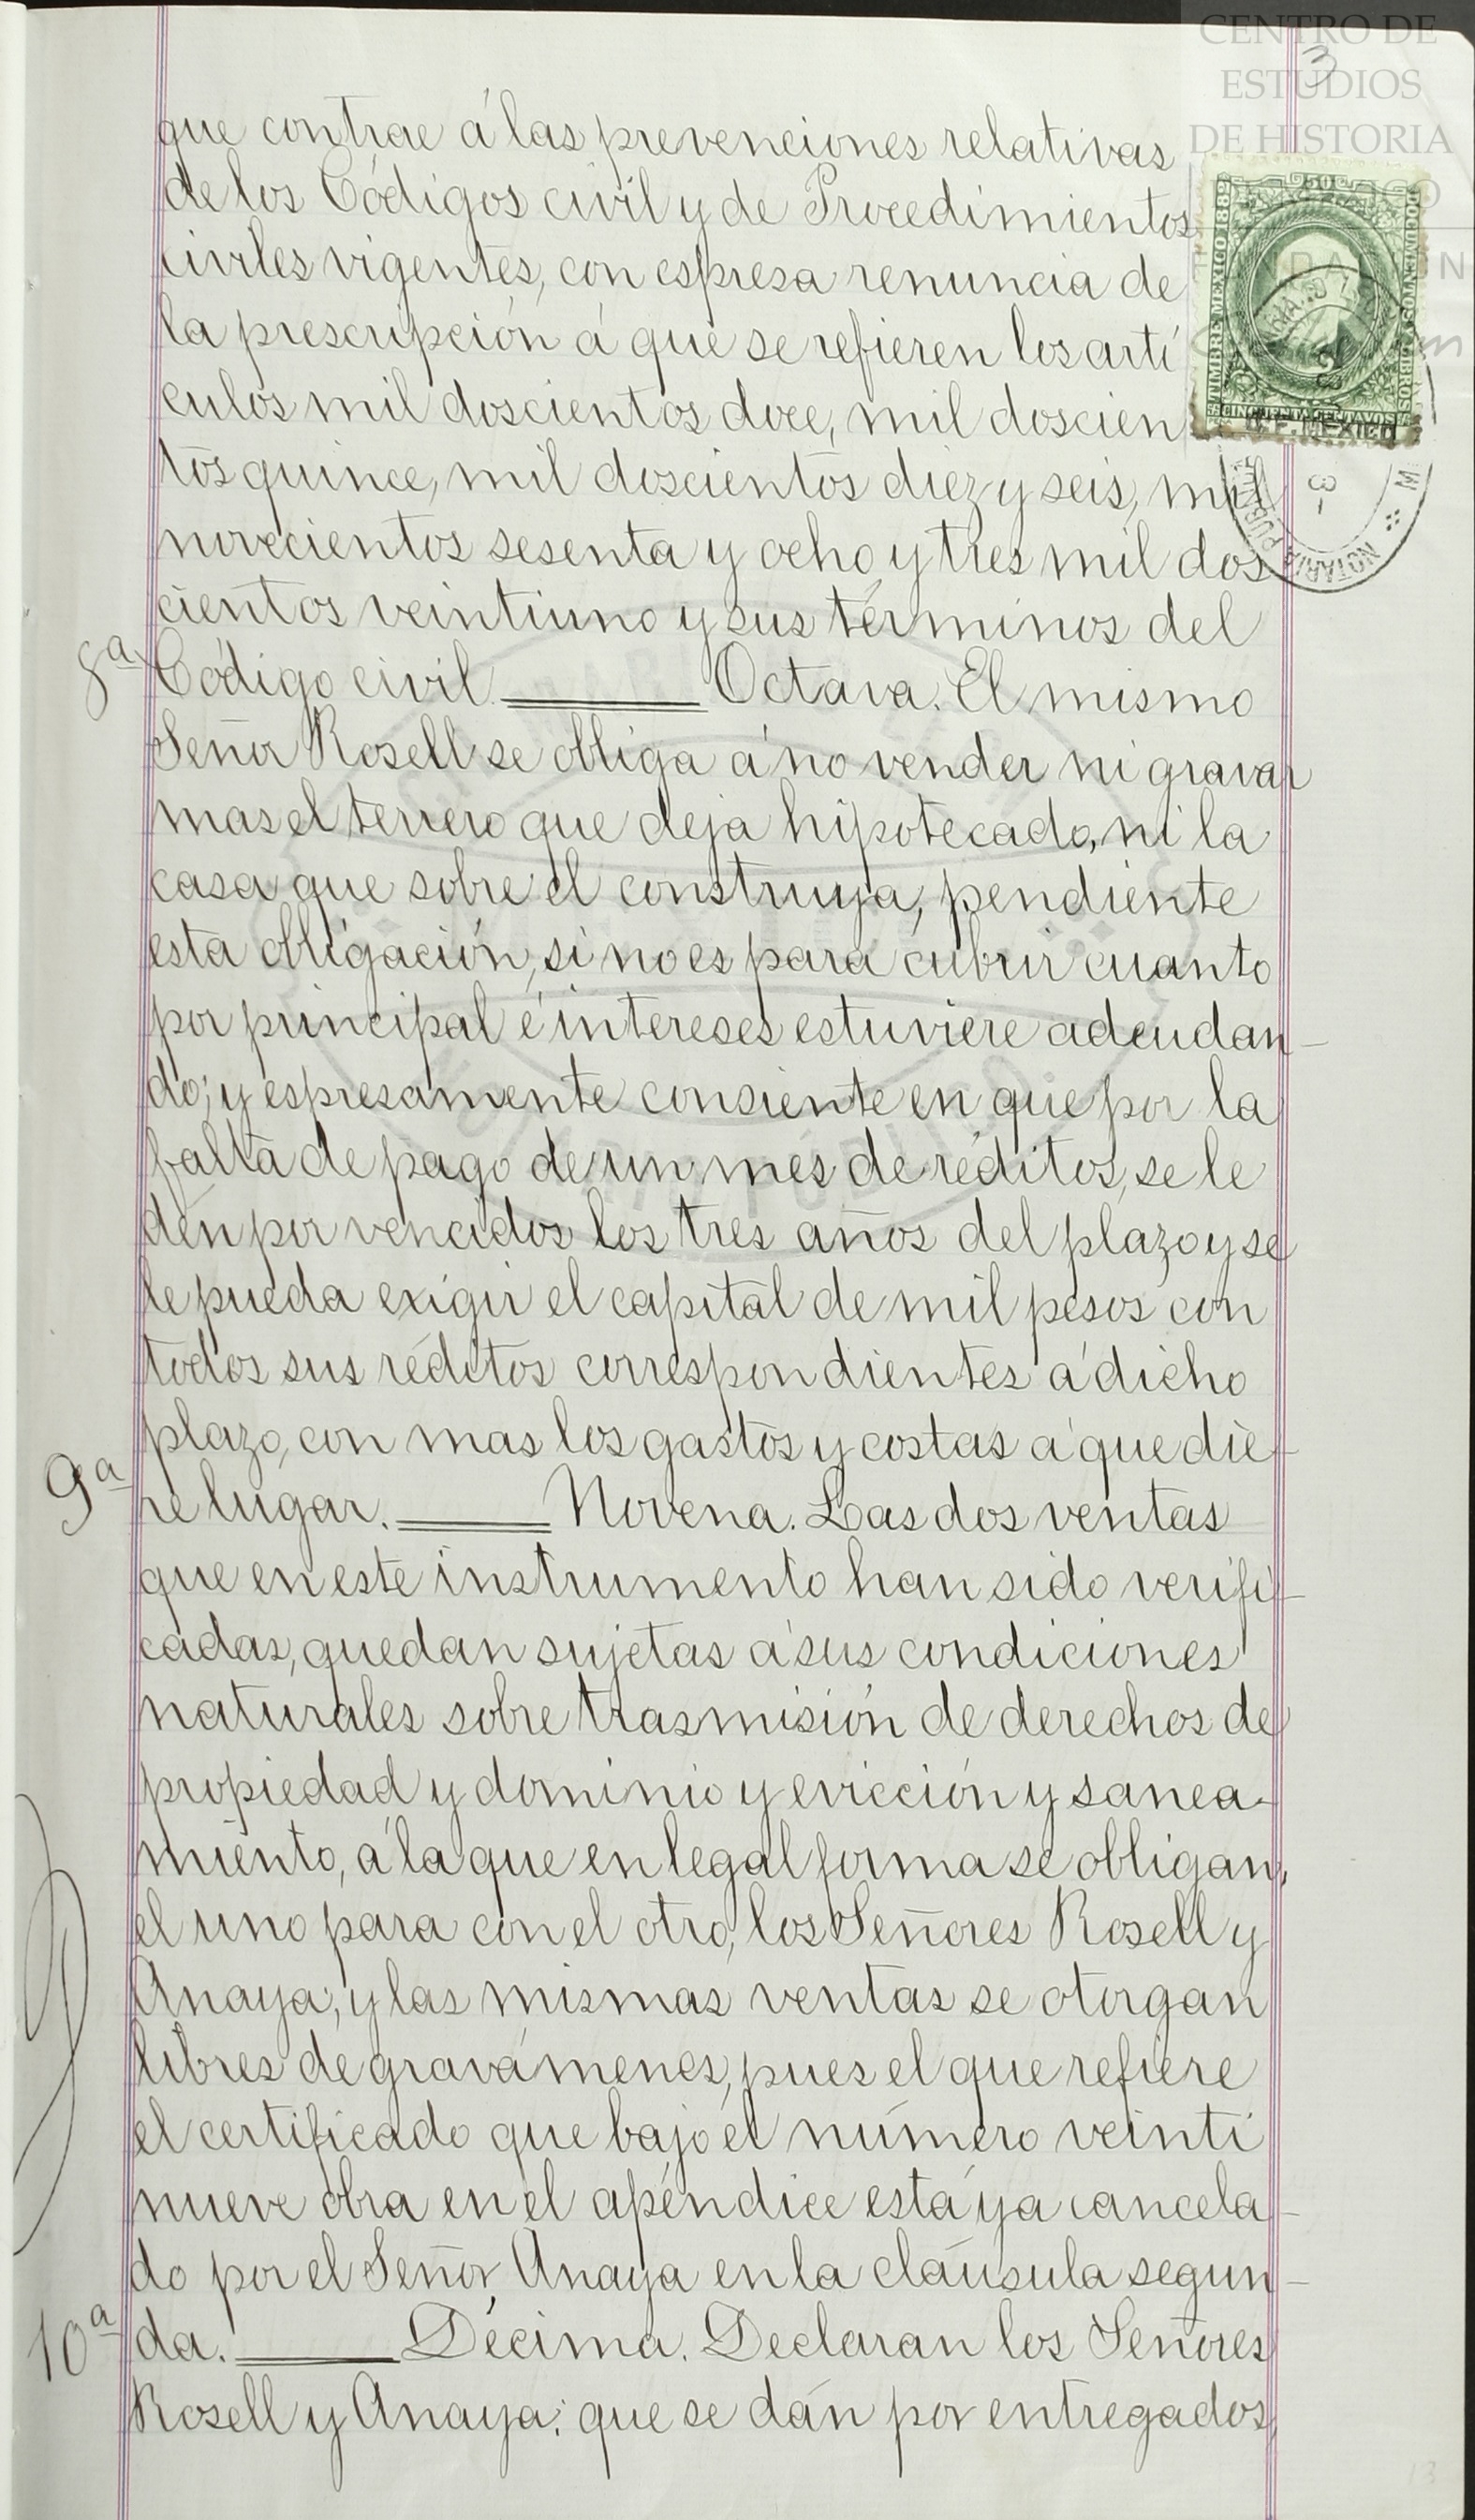 CENTRO DE
ESTUDIOS
DE HISTORIA
3
que contrae á las prevenciones relativas
de los Códigos civil y de Procedimientos
civiles vigentes, con espresa renuncia de
la prescripción á que se refieren los artí
culos mil doscientos doce, mil doscien
tos quince, mil doscientos diez y seis, mil
novecientos sesenta y ocho y tres mil dos
cientos veintiuno y sus términos del
8ª Código civil. Octava. El mismo
Señor Rosell se obliga á no vender ni gravar
mas el terreno que deja hipotecado, ni la
casa que sobre el construya, pendiente
esta obligación, si no es para cubrir cuanto
por principal é intereses estuviere adeudan-
do; y espresamente consiente en que por la
falta de pago de un mes de réditos, se le
dén por vencidos los tres años del plazo y se
le pueda exigir el capital de mil pesos con
todos sus réditos correspondientes á dicho
plazo, con mas los gastos y costas á que die-
9ª re lugar. Novena. Las dos ventas
que en este instrumento han sido verifi-
cadas, quedan sujetas á sus condiciones
naturales sobre trasmisión de derechos de
propiedad y dominio y evicción y sanea-
miento, á la que en legal forma se obligan,
el uno para con el otro, los Señores Rosell y
Anaya; y las mismas ventas se otorgan
libres de gravámenes, pues el que refiere
el certificado que bajo el número veinti
nueve obra en el apéndice está ya cancela-
do por el Señor Anaya en la cláusula segun-
10ª da. Décima. Declaran los Señores
Rosell y Anaya: que se dán por entregados
TIMBRE MEXICO 1889
50
CINCUENTA CENTAVOS
D.F. MEXICO
NOTARIA PUB
13